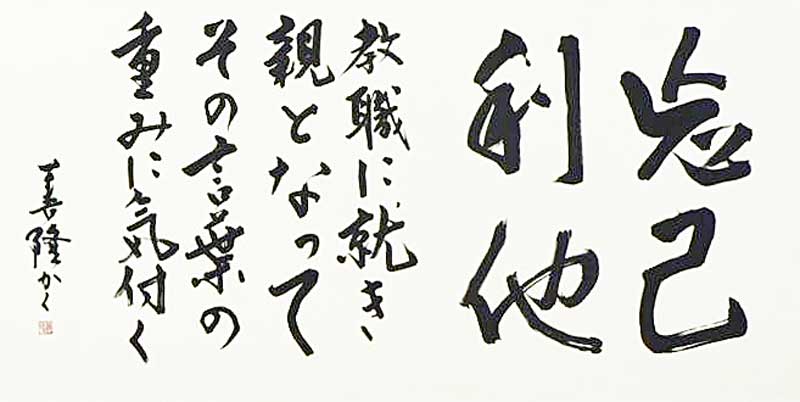 忘己
利他
教職に就き
親となって
その言葉の
重みに気付く
善隆かく